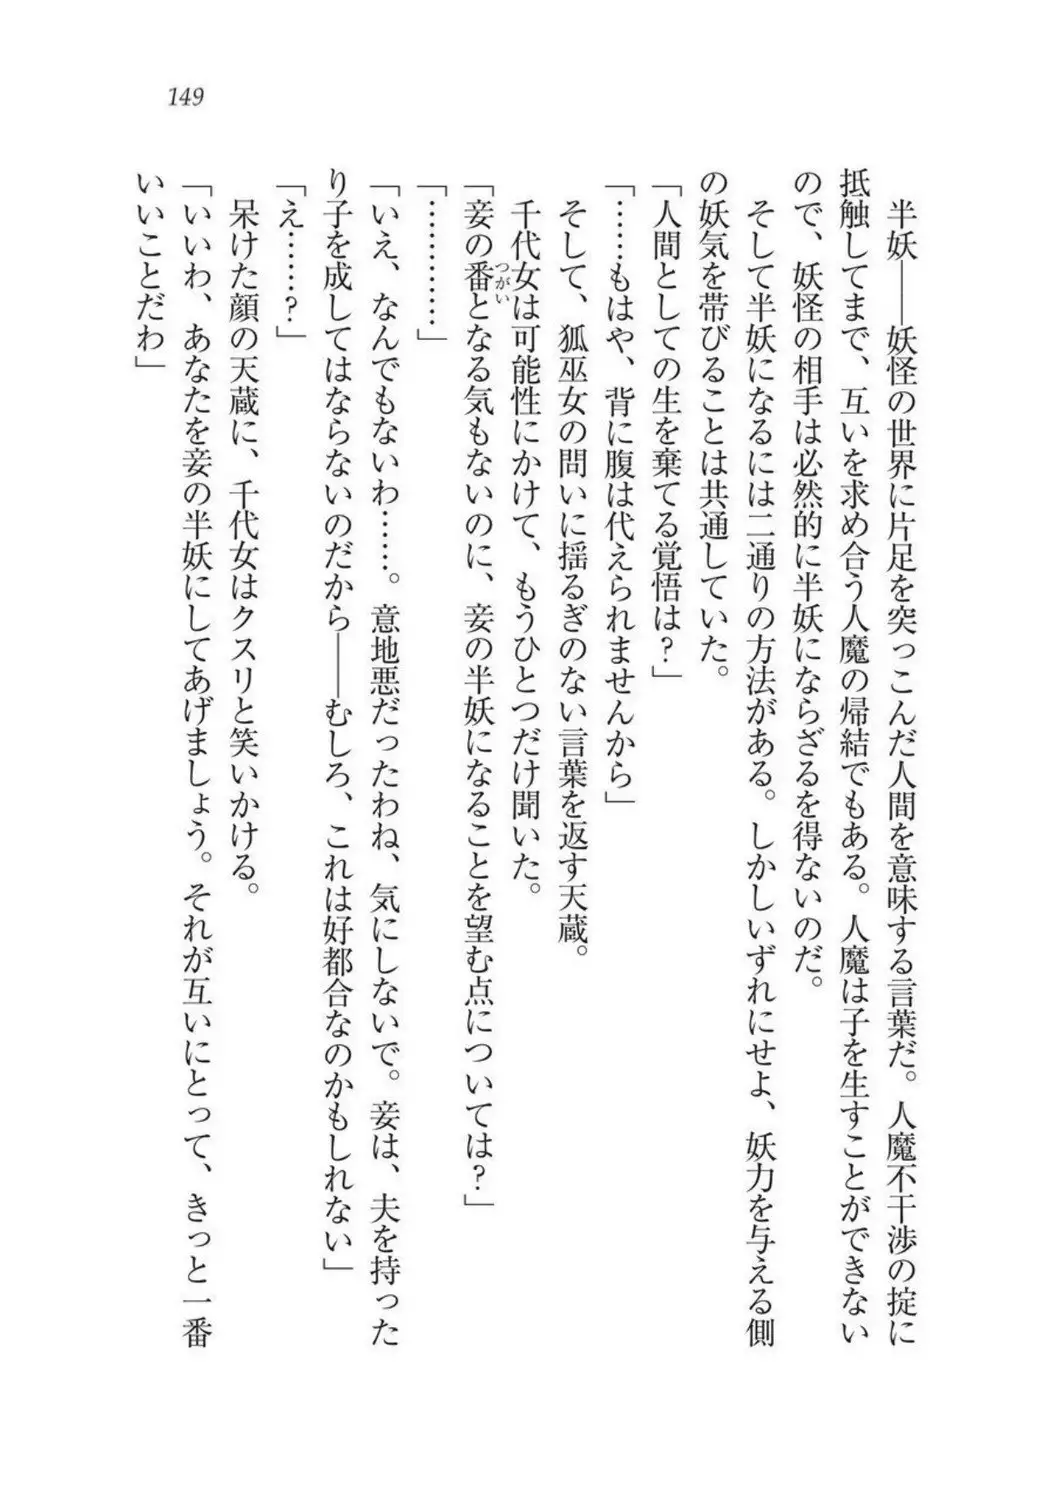 149
　半妖――妖怪の世界に片足を突っこんだ人間を意味する言葉だ。人魔不干渉の掟に
抵触してまで、互いを求め合う人魔の帰結でもある。人魔は子を生すことができない
ので、妖怪の相手は必然的に半妖にならざるを得ないのだ。
　そして半妖になるには二通りの方法がある。しかしいずれにせよ、妖力を与える側
の妖気を帯びることは共通していた。
「人間としての生を棄てる覚悟は？」
「……もはや、背に腹は代えられませんから」
　そして、狐巫女の問いに揺るぎのない言葉を返す天蔵。
　千代女は可能性にかけて、もうひとつだけ聞いた。
「妾の番となる気もないのに、妾の半妖になることを望む点については？」
つがい
「…………」
「いえ、なんでもないわ……。意地悪だったわね、気にしないで。妾は、夫を持った
り子を成してはならないのだから――むしろ、これは好都合なのかもしれない」
「え……？」
　呆けた顔の天蔵に、千代女はクスリと笑いかける。
「いいわ、あなたを妾の半妖にしてあげましょう。それが互いにとって、きっと一番
いいことだわ」